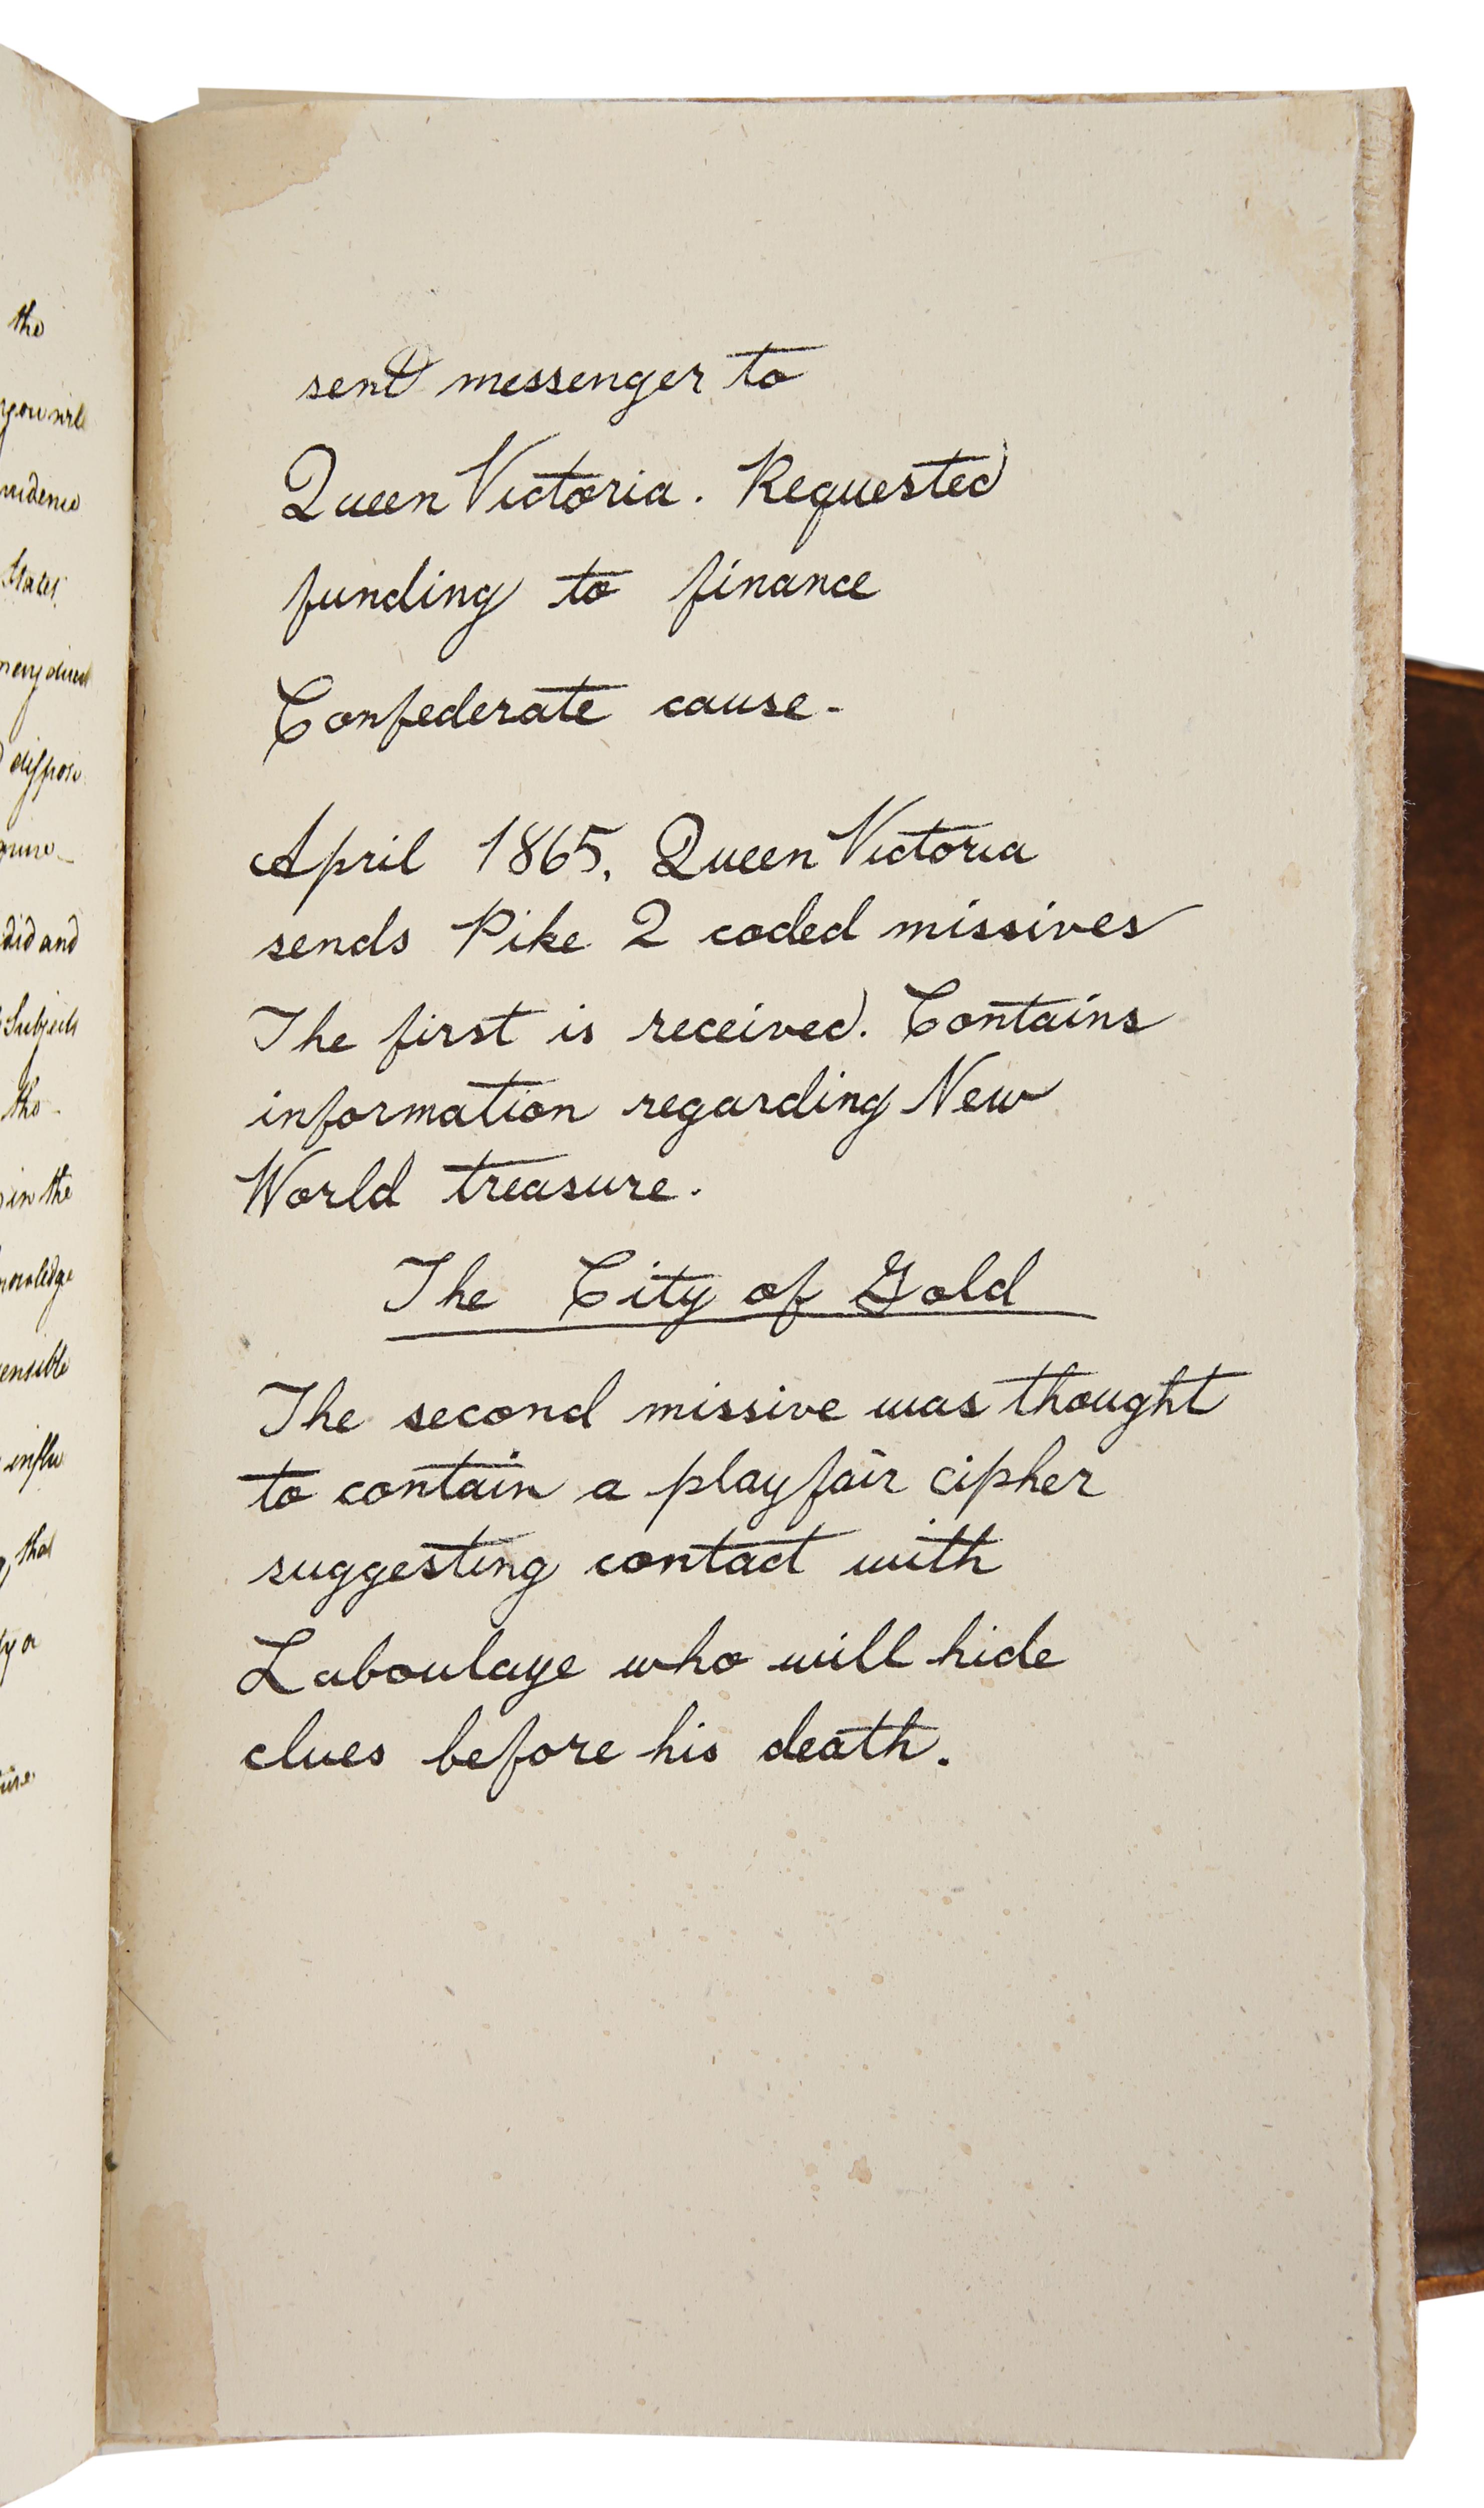 the
send messenger to
Queen Victoria. Requested
funding to finance
Confederate cause.
April 1865, Queen Victoria
sends Pike 2 coded missives
The first is received. Contains
information regarding New
World treasure.
The City of Gold
The second missive was thought
to contain a playfair cipher
suggesting contact with
Laboulaye who will hide
clues before his death.
States
did and
Subjects
the
in the
that